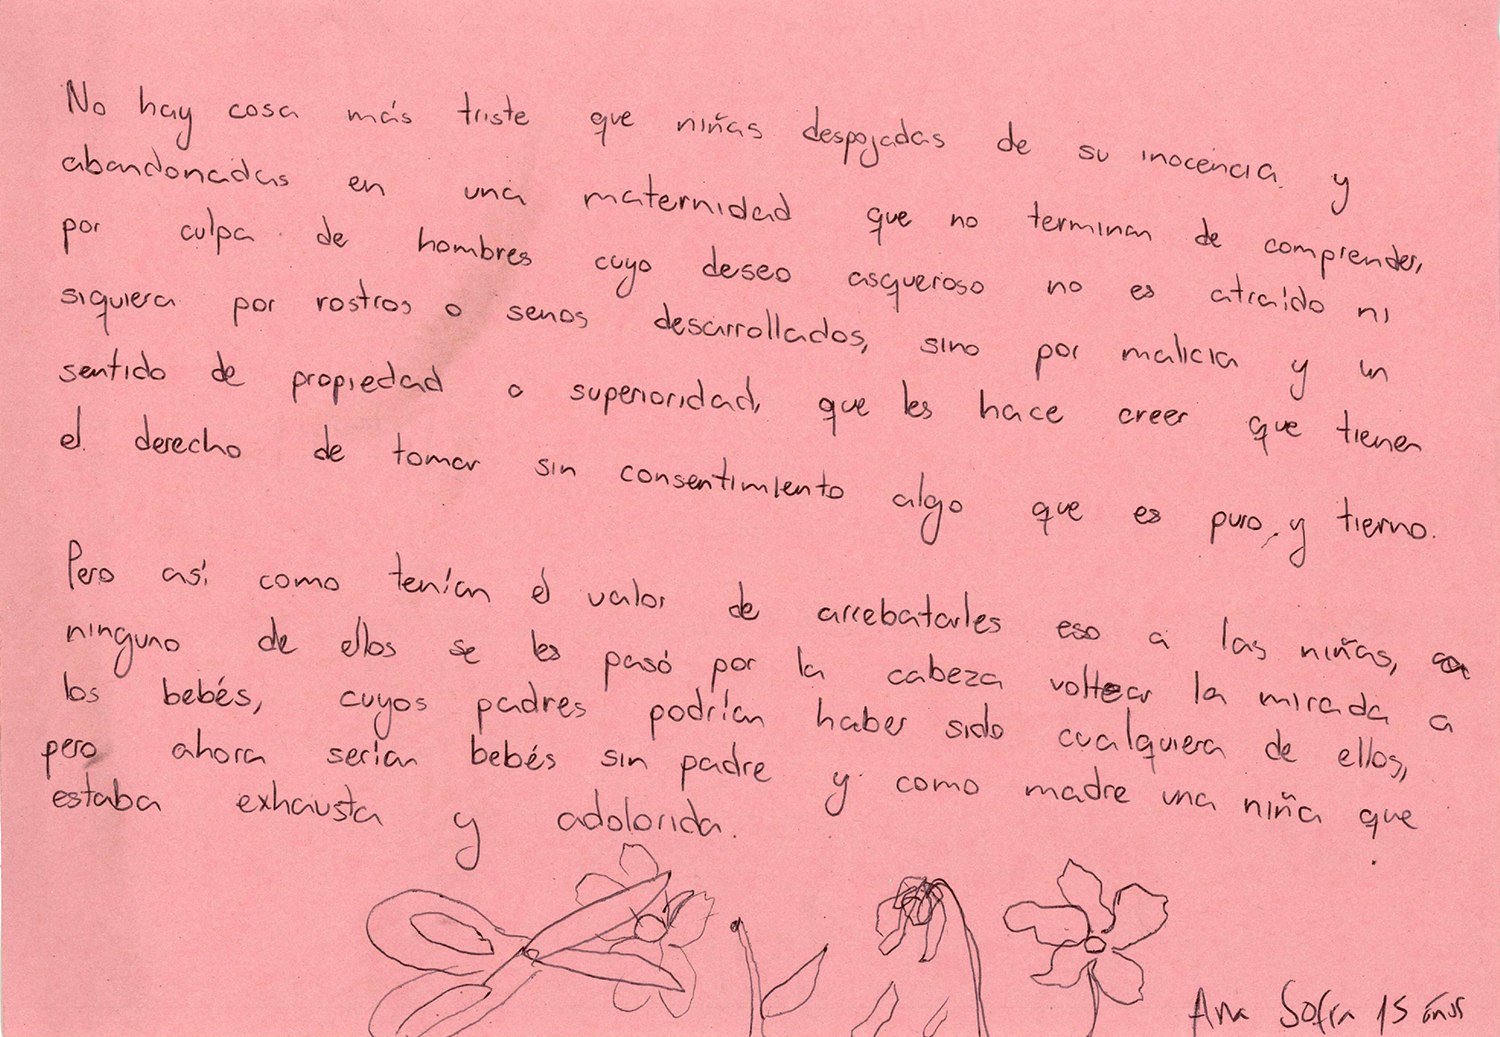 No hay cosa más triste que niñas despojadas de su inocencia y
abandonadas en una maternidad que no terminan de comprender,
por culpa de hombres cuyo deseo asqueroso no es atraído ni
siquiera por rostros o senos desarrollados, sino por malicia y un
sentido de propiedad o superioridad, que les hace creer que tienen
el derecho de tomar sin consentimiento algo que es puro y tierno.
Pero así como tenían el valor de arrebatarles eso a las niñas, a
ninguno de ellos se les pasó por la cabeza voltear la mirada a
los bebés, cuyos padres podrían haber sido cualquiera de ellos,
pero ahora serían bebés sin padre y como madre una niña que
estaba exhausta y adolorida.
Ana Sofía 15 años